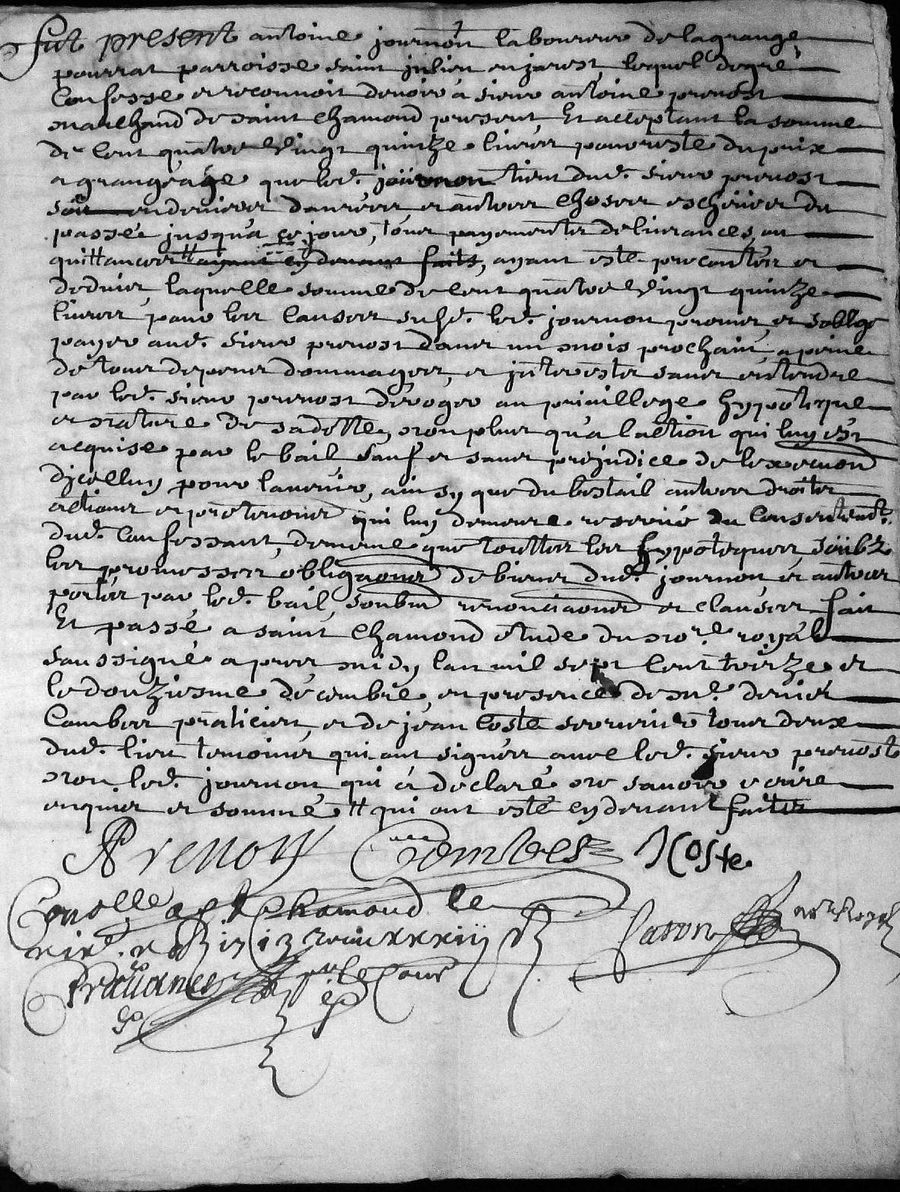 fut present antoine journon laboureur de la grange
pourrat parroisse saint julien en jarest lequel de gré
Confesse et reconnoit devoir à sieur antoine prenost
marchand de saint chamond present Et acceptant la somme
de Cent quatre Vingt quinze livres pour reste du prix
a grangeage que led. journon tient dud. sieur prenost
soit en deniers danrées et autres choses escheues du
passé jusqu'a ce jour, tous payements delivrances, ou
quittances ayant cy devant faits, ayant esté precontés et
deduits laquelle somme de Cent quatre Vingt quinze
livres pour les Causes susd. led. journon promet et soblige
payer aud. sieur prenost dans un mois prochain, a peine
de tous depens dommages, et interests sans entendre
par led. sieur prenost deroger au privillege hypoteque
et nature de sa dette, non plus qu'a laction qui luy est
acquise par le bail sauf et sans prejudice de lexecution
dicelluy pour lavenir, ainsy que du bestail autres droits
actions et pretentions qui luy demeure reservés du Consentemt.
dud. Confessant, dememe que touttes les hypoteques soubz
les promesses obligations de biens dud. journon et autres
portés par led. bail, soubm renonciations et clauses fait
Et passé a saint Chamond étude du nore. royal
soussigné apres midy lan mil sept Cent treize et
le douziesme décembre, en presence de me. denis
Combes praticien, et de jean Coste serrurier tous deux
dud. lieu temoins qui ont signés avec led. sieur prenost
non led. journon qui a declaré ne savoir ecrire
enquis et sommé # qui ont esté cy devant faits
Prenost Combes J Coste
Conolle a St Chamond le
xire. x bre 1713 Receu
nore Royal